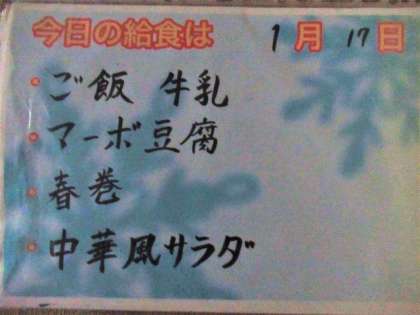 今日の給食は 1月 17日
ご飯 牛乳
マーボ豆腐
春巻
中華風サラダ